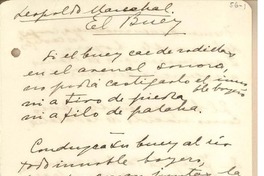 Leopoldo Marechal.
El Buey
Si el buey cae de rodillas
en el arenal sonoro,
no podrá castigarlo el
boyero
ni a tiro de piedra
ni a filo de palabra.
Conduzca su buey al río
todo inmoble boyero,
juntas la